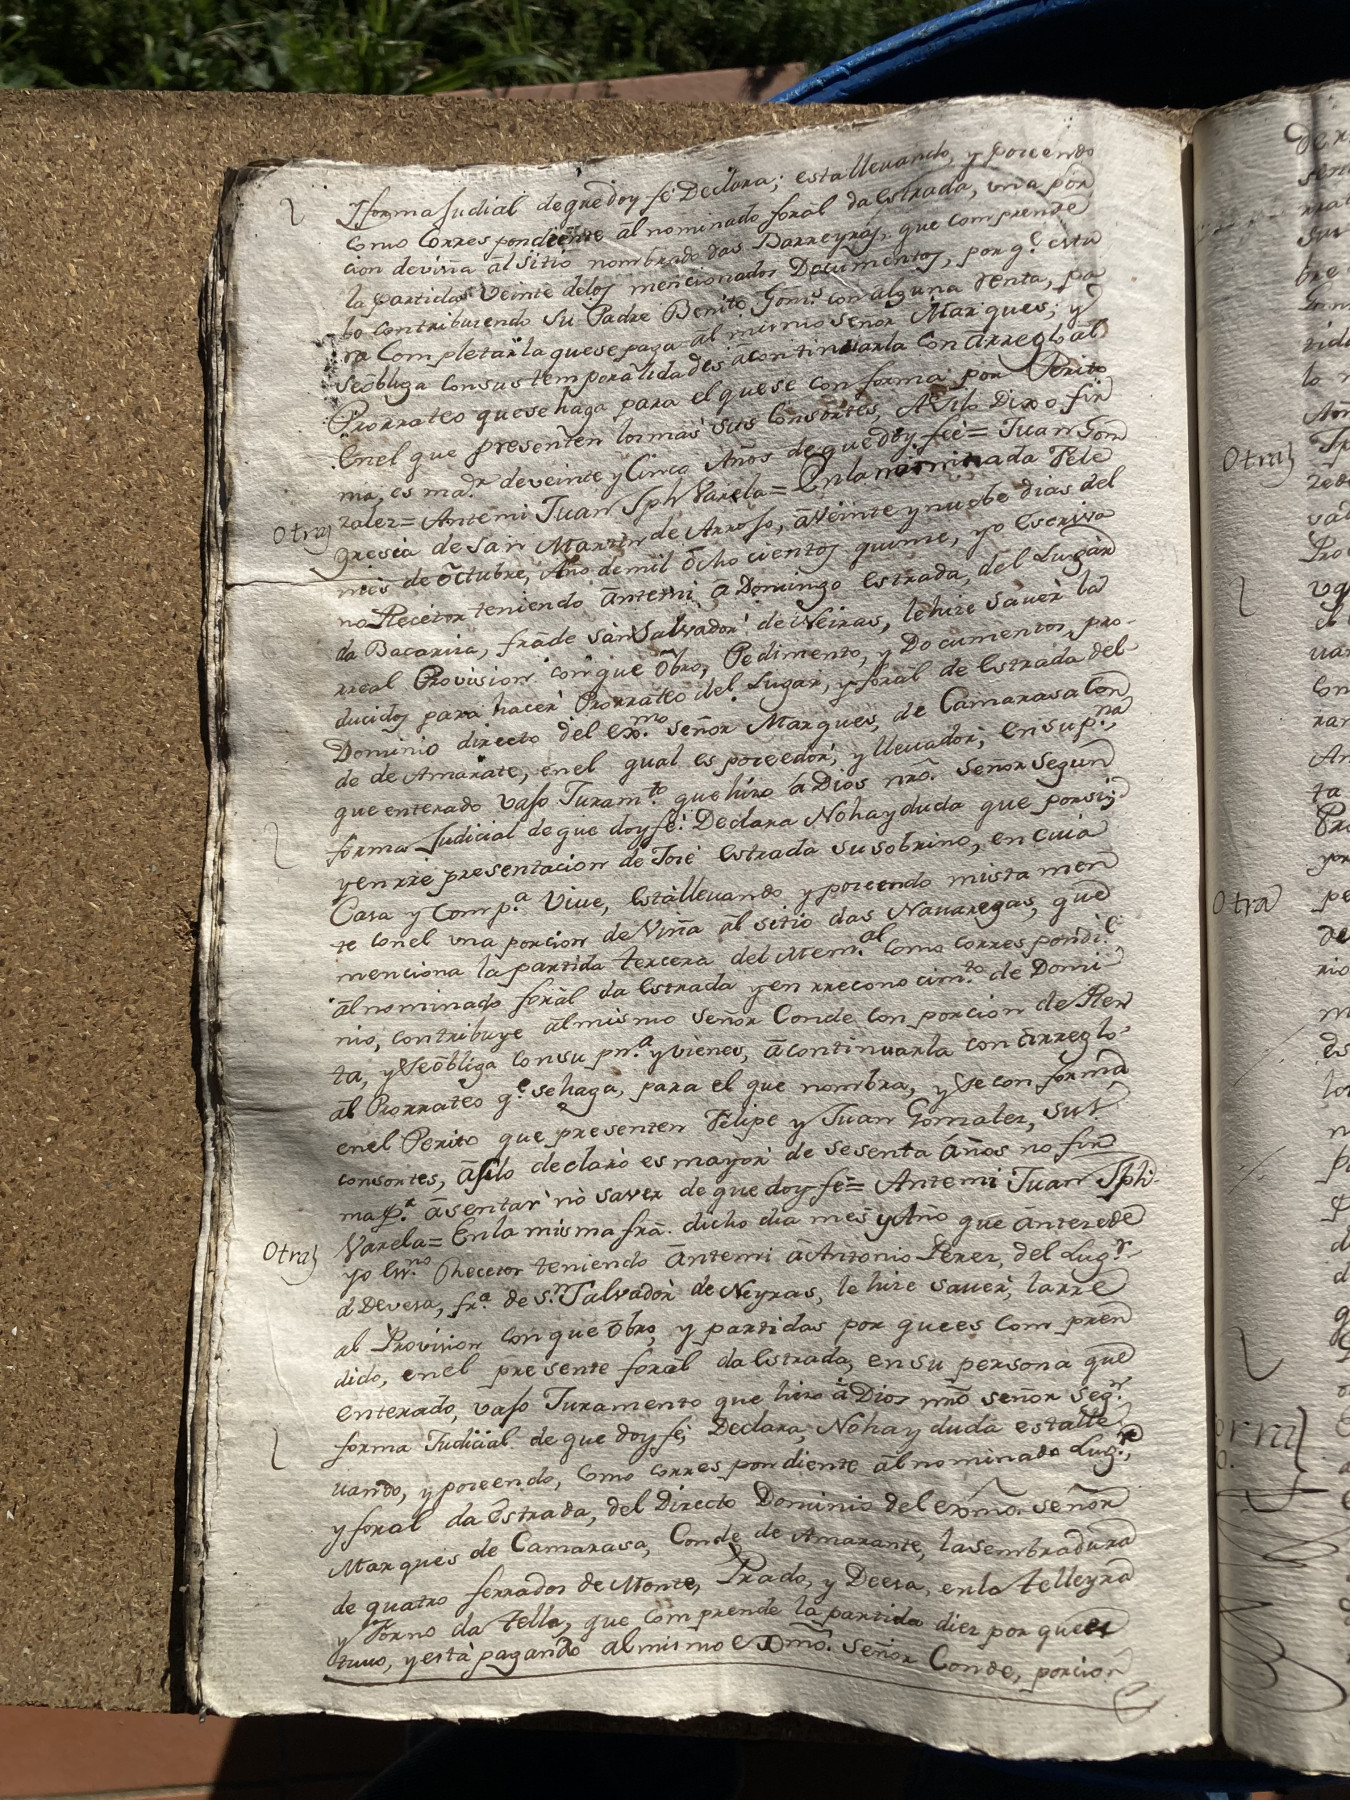 Yforma Judial de que doy fé Declara; esta llevando, y poceendo
como Correspondiente al nominado foral da estrada, vna por
cion de viña ál sitio nombrado das Barreyras, que comprende
la partida Veinte delos mencionados Documentos, por q.e estu
bo contribuiendo su Padre Benito Gom.s con alguna Renta, pa
ra Completar la que se paga ál mismo señor Marques; y
se óbliga con sus temporalidades ácontinuarla con árreglo ál
Prorrateo que se haga para el que se conforma por Perito
Enel que presenten los mas sus Consortes, Asilo Dixo fir
ma, es ma.r de veinte y Cinco Años de que doy feé = Juan Gon
Otra
zalez = Antemi Juan Jph Varela = En la nominada Fele
gresia de San Martin de Arrojo, áVeinte y nuebe dias del
mes de óctubre, Año de mil ócho cientos quinze, yo Escriva
no Recetor teniendo ántemi á Domingo Estrada, del Lugar
da Bacariza, frã de sán Salvador de Neiras, le hize saver la
rreal Provision con que óbro, Pedimento, y Documentos, pro-
ducidos para hacer Prorrateo del Lugar, y foral de Estrada del
Dominio directo del Exmo. señor Marques, de Camarasa Con
de de Amarate, enel gual es poceedor, y llevador, en su p.na
que enterado vajo Juram.to que hizo á Dios nró. señor segun
forma Judicial de que doy fé: Declara No hay duda que por si,
y en rre presentacion de José Estrada su sobrino, en cuia
Casa y Comp.a Vive, está llevando, y poceendo mista men
te conel vna porcion de Viña ál sitio das Navaregas, que
menciona la partida tercera del Mem.al como correspondi.e
ál nominado forál da Estrada y en rreconocim.to de Domi
nio, contribuye ál mismo señor Conde con porcion de Ren
ta, y se óbliga con su pn.a y vienes, á continuarla con árreglo
ál Prorrateo q.e se haga, para el que nombra, y se conforma
enel Perito que presenten Felipe y Juan Gomalez, sus
consortes, ásilo declaró es mayor de sesenta áños no fir
ma p.r ásentar no saver de que doy fé = Antemi Juan Jph.
Otra
Varela = En la misma frã. dicho dia mes y Año que ántecede
yo Es.no Recetor teniendo ántemi á Antonio Perez, del Lug.r
d Devesa, fr.a de S.n Salvador de Neyras, le hize saver, la rre
al Provision con que óbro, y partidas por que es compren
dido, enel presente forál da Estrada, en su persona que
enterado, vajo Juramento que hizo á Dios nró señor seg.n
forma Judicial de que doy fé, Declara, No hay duda está lle
vando, y poceendo, como correspondiente ál nominado Lug.r,
y foral da Estrada, del Directo Dominio del exmo. señor
Marques de Camarasa, Conde de Amarante, la sembradura
de quatro ferrados de Monte, Prado, y Deesa, en la telleyra
y Forno da tella, que comprende la partida diez por que es
tuvo, y está pagando al mismo Exmo. Señor Conde, porcion
Otra
Otra